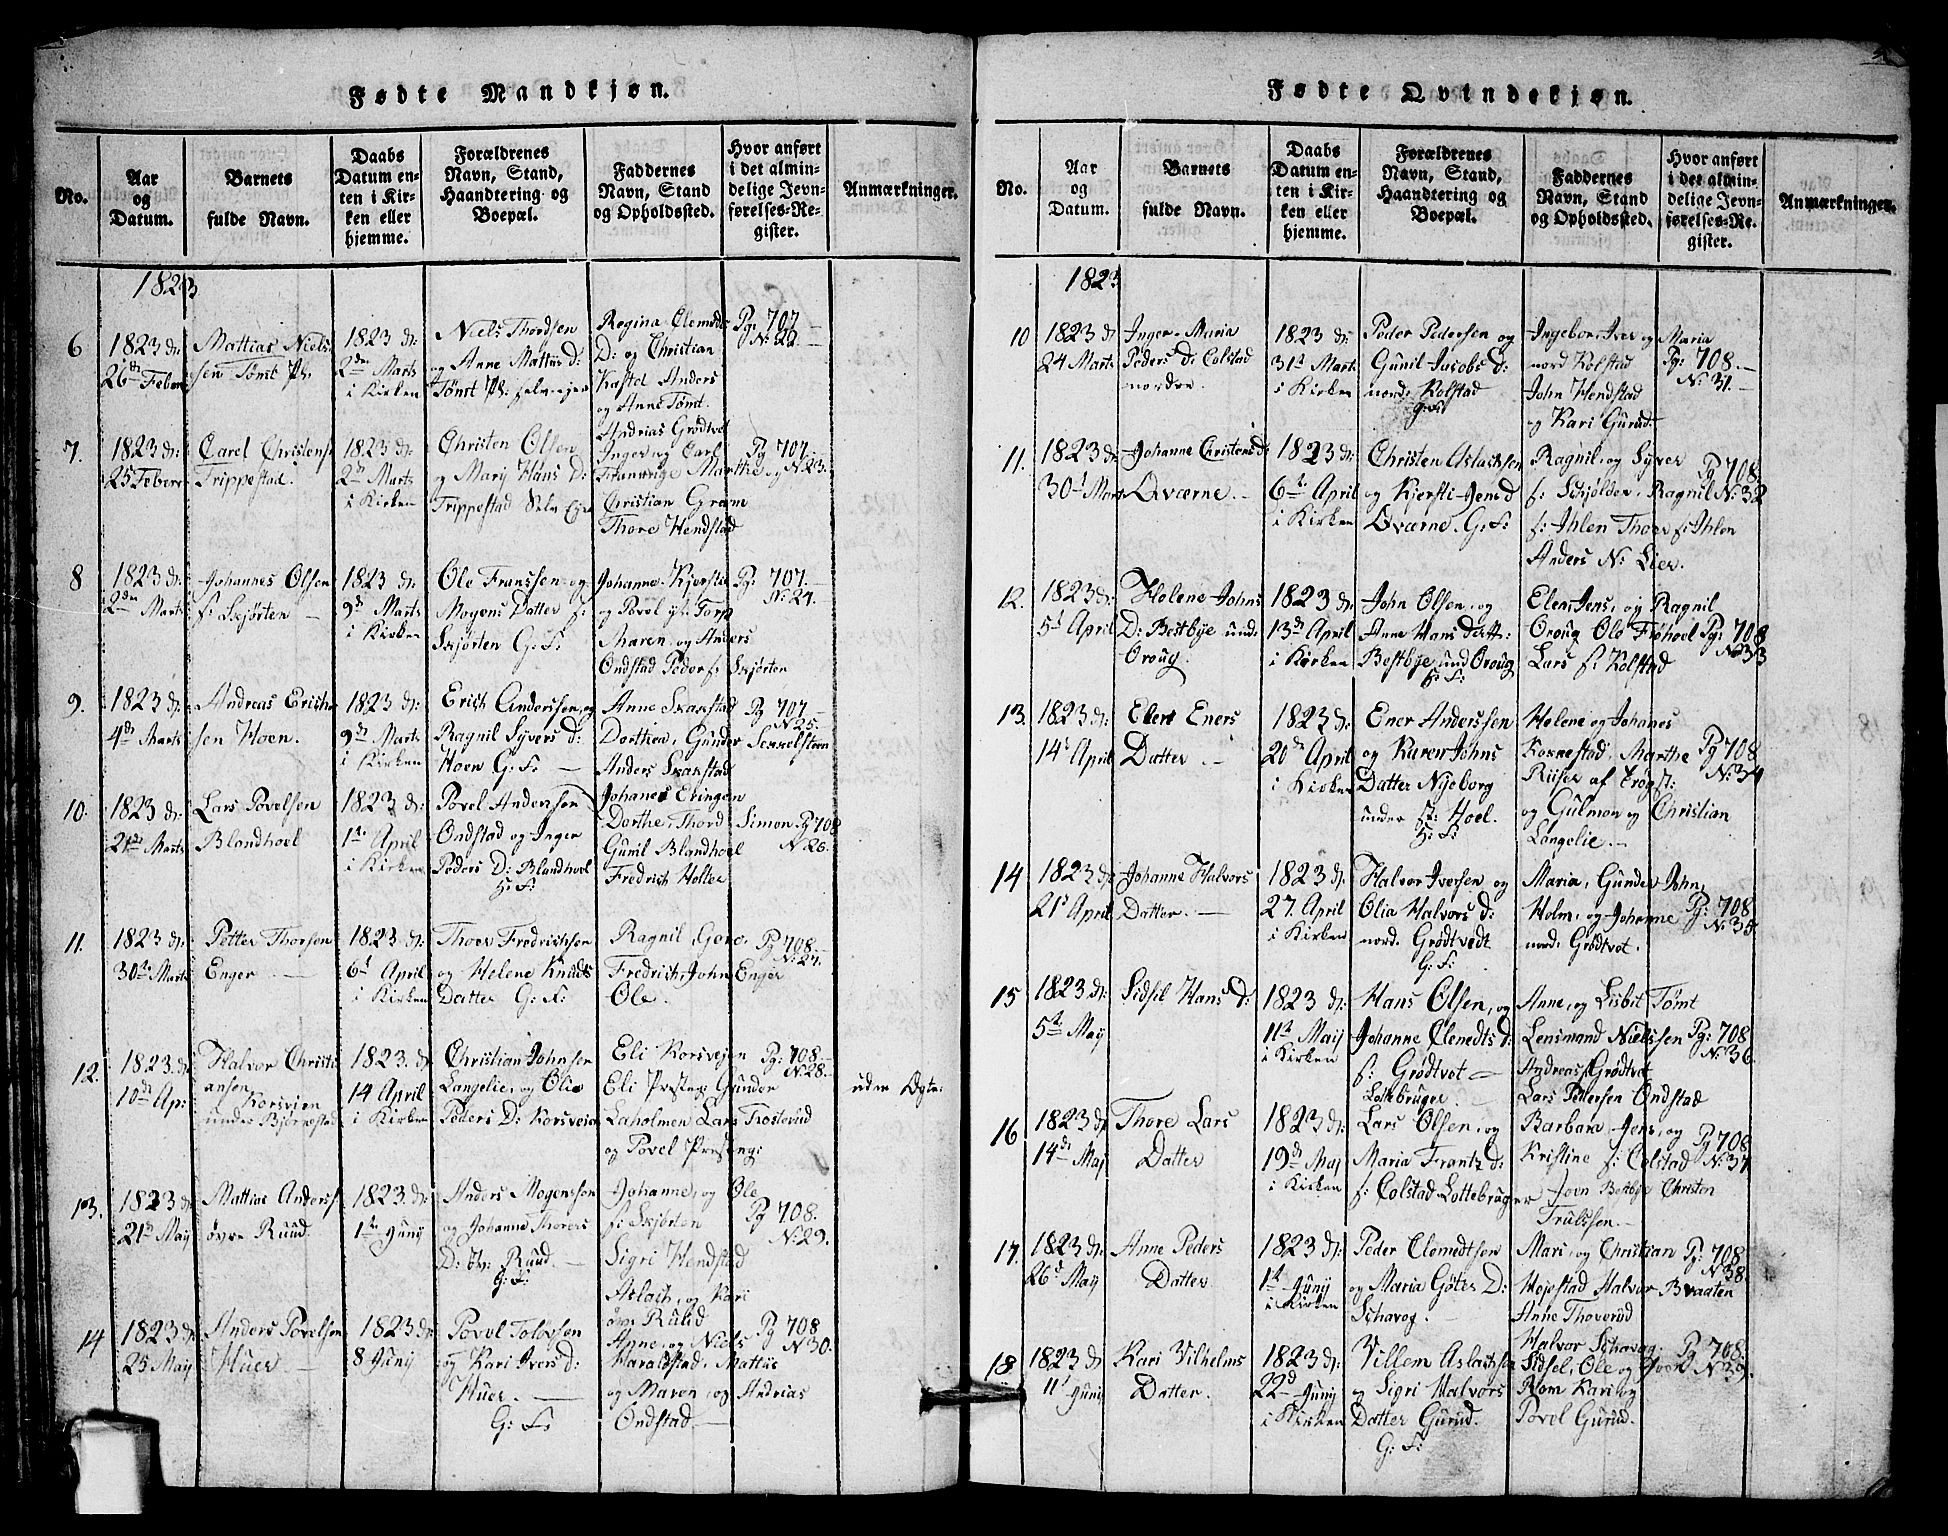 Fødte Mandkjøn.
No.
Aar
og
Datum.
Barnets
fulde Navn.
Daabs
Datum en-
ten i Kir-
ken eller
hjemme.
Forældrenes
Navn, Stand,
Haandtering og
Boepæl.
Faddernes
Navn, Stand
og Opholdssted.
Hvor anført
i det almin-
delige Jevn-
førelses-Re-
gister.
Anmærkninger.
1823
6
1823 d:
26th Febru
Mattias Niels
sen Tømt Pl:
1823 d:
2den Marts
i Kirken
Niels Thordsen
og Anne Mattias D:
Tømt Pl: selv-ejer
Regina Clemedts
D: og Christian
Kastel Anders
og Anne Tømt.
Andrias Grødtvet
Pg: 707
No: 22.
7.
1823 d:
25 Febru
Carel Christens
Trippestad.
1823 d:
2den Marts
i Kirken
Christen Olsen
og Marij Hans D:
Trippestad Selv Ejer
Inger og Carl
Marthe og
Christian Gram
Thore Hendstad
Pg 707
No 23.
8
1823 d:
2den Marts
Johannes Olsen
f: Skjørten
1823 d:
9de Marts
i Kirken
Ole Franssen og
Mogens Datter f:
Skjørten G: F:
Johanne, Kjersti
og Povel yt: Torp
Maren, og Anders
Ondstad Peder f: Skjørten
Pg: 707
No: 24.
9.
1823 d:
4de Marts
Andreas Erich
sen Hoen.
1823 d:
9de Marts
i Kirken
Erich Anderssen, og
Ragnil Syvers d:
Hoen G: F:
Anne Skakstad
Dorthea, Gunder Sekkelsteen
Anders Skakstad
Pg 707
No 25.
10.
1823 d:
21de Marts
Lars Povelsen
Blandhoel
1823 d:
1te April
i Kirken
Povel Andersen
Ondstad og Inger
Peders D: Blandhoel
H: F:
Johanes Ekingen
Dorthe, Thord Simon
Gunil Blandhoel
Fredrich Holter
Pg 708
No 26.
11.
1823 d:
30te Marts
Petter Thorsen
Enger
1823 d:
6t April
i Kirken
Thoer Fredrichsen
og Helene Knuds
Datter G: F:
Ragnil, Gero
Fredrich, John Enger
Ole.
Pg 708
No: 27.
12.
1823. d:
10de Ap:
Halvor Christi
ansen
Korsveien
under Bjørnestad
1823. d:
14 April
i Kirken
Christian Johnsen
Langelie, og Olia
Peders D: Korsveien
Eli Korsvejen
Eli Presteng Gunder
Laholmen Lars Trosterud
og Povel Presteng:
Pg: 708
No: 28
uden Ægte:
13.
1823 d:
21de Maij
Mattias Anders
øvre Ruud.
1823. d:
1te Junij
Anders Mogenssen
og Johanne Thorers
D: øv: Ruud
G: F:
Johanne, og Ole
f: Skjørten
Sigri Hendstad
Aslach, og Kari
øvre Ruud
Pg 708.
No: 29.
14
1823 d:
25 Maij
Anders Povelsen
Huer
1823 d:
8 Junij
Povel Toløvsen
og Kari Ivers d:
Huer.
G: F:
Anne, og Niels
Haraldstad. Mattias
og Maren, og Andrias
Ondstad
Pg 708
No 30.
Fødte Qvindekjøn.
No.
Aar
og
Datum.
Barnets
fulde Navn.
Daabs
Datum en-
ten i Kir-
ken eller
hjemme.
Forældrenes
Navn, Stand,
Haandtering og
Boepæl.
Faddernes
Navn, Stand
og Opholdssted.
Hvor anført
i det almin-
delige Jevn-
førelses-Re-
gister.
Anmærkninger.
1823
10
1823 d
24 Marts
Inger, Maria
Peders d: Colstad
nordre
1823 d:
31d Marts
i Kirken
Peder Pedersen og
Gunil Jacobs d:
nord: Kolstad
G: F:
Ingebor, Iver og Maria
nord Kolstad
John Hendstad
og Kari Gurud
Pg: 708.
No: 31.
11.
1823 d:
30d Marts
Johanne Christens d:
Qværne.
1823 d:
6te April
i Kirken
Christen Aslachsen
og Kjersti Jens d
Qværne. G: F:
Ragnil, og Syver
f: Schjølder, Ragnil
f: Ihlen Thoer f: Ihlen
Anders N: Lier.
Pg 708
No: 32
12.
1823 d:
5d April
Helene Johns
D: Bestbye und:
Oroug.
1823 d:
13de April
i Kirken
John Olsen, og
Anne Hans datt:
Bestbye, und Oroug
H: F:
Elen, Jens, og Ragnil
Oroug Ole Frøhoel
Lars f: Kolstad
Pg: 708
No 33
13.
1823 d:
14d April
Elert Eners
Datter
1823 d:
20de April
i Kirken
Ener Anderssen
og Karen Johns
Datter Nyeborg
under St: Hoel.
H: F:
Helene og Johanes
Kornestad. Marthe
Riiser af Trøgst:
og Gulmon og Christian
Langelie.
Pg 708
No: 34
14
1823 d:
21d April
Johanne Halvors
Datter.
1823 d:
27. April
i Kirken
Halvor Iversen og
Olia Halvors d:
nord. Grødtvedt
G: F:
Maria, Gunder John,
Holm, og Johanne
nord. Grødtvet.
Pg: 708
No: 35.
15
1823 d:
5te Maij
Sidsil Hans d:
1823 d:
11te Maij
i Kirken
Hans Olsen, og
Johanne Clemedts d:
f: Grødtvet
Lottebruger.
Anne, og Lisbit Tømt
Lensmand Nielssen
Andreas f: Grødtvet
Lars Pedersen Ondstad
Pg: 708
No: 36.
16
1823 d:
14de Maij
Thore Lars
Datter
1823 d:
19de Maij
i Kirken
Lars Olsen, og
Maria Frantz d:
f: Colstad Lottebruger
Barbara, Jens, og
Kristine f: Colstad
Jovn Bestbye Christen
Trulssen.
Pg 708
No: 37
17.
1823 d:
26d Maij
Anne Peders
Datter
1823 d:
1te Junij
i Kirken
Peder Clemedtsen
og Maria Gøtes D:
Schavog
Mari, og Christian
Hojestad Halvor Braaten
Anne Thoverud
Halvor Schavog
Pg: 708
No 38.
18.
1823 d
11t Junij
Kari Vilhelms
Datter.
1823 d:
22d Junij
i Kirken
Villem Aslachsen
og Sigri Halvors
Datter Gurud.
G: F:
Sidsel, Ole og Iver
Rom Kari og
Povel Gurud.
Pg 708
No 39.